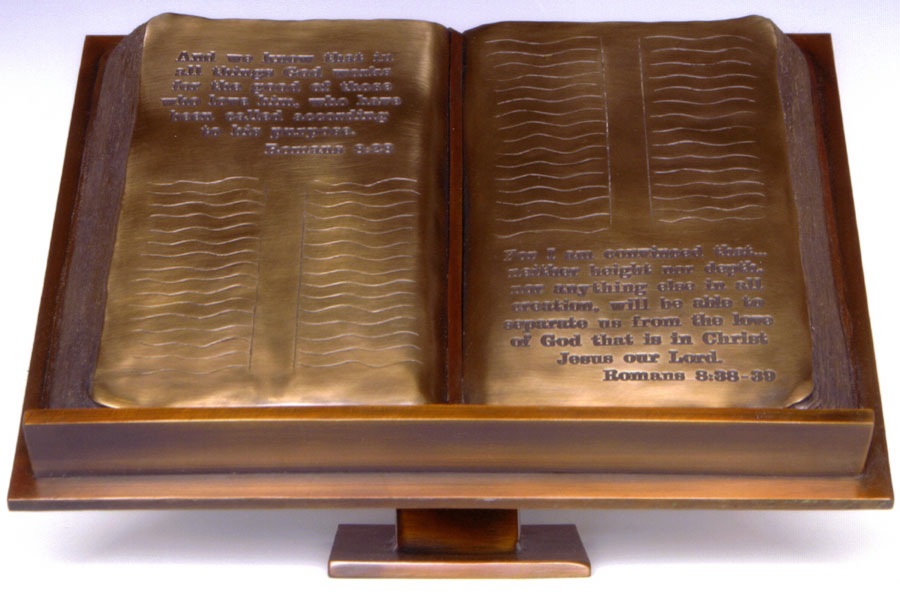 And we know that in
all things God works
for the good of those
who love him, who have
been called according
to his purpose.
Romans 8:28
For I am convinced that...
neither height nor depth,
nor anything else in all
creation, will be able to
separate us from the love
of God that is in Christ
Jesus our Lord.
Romans 8:38-39